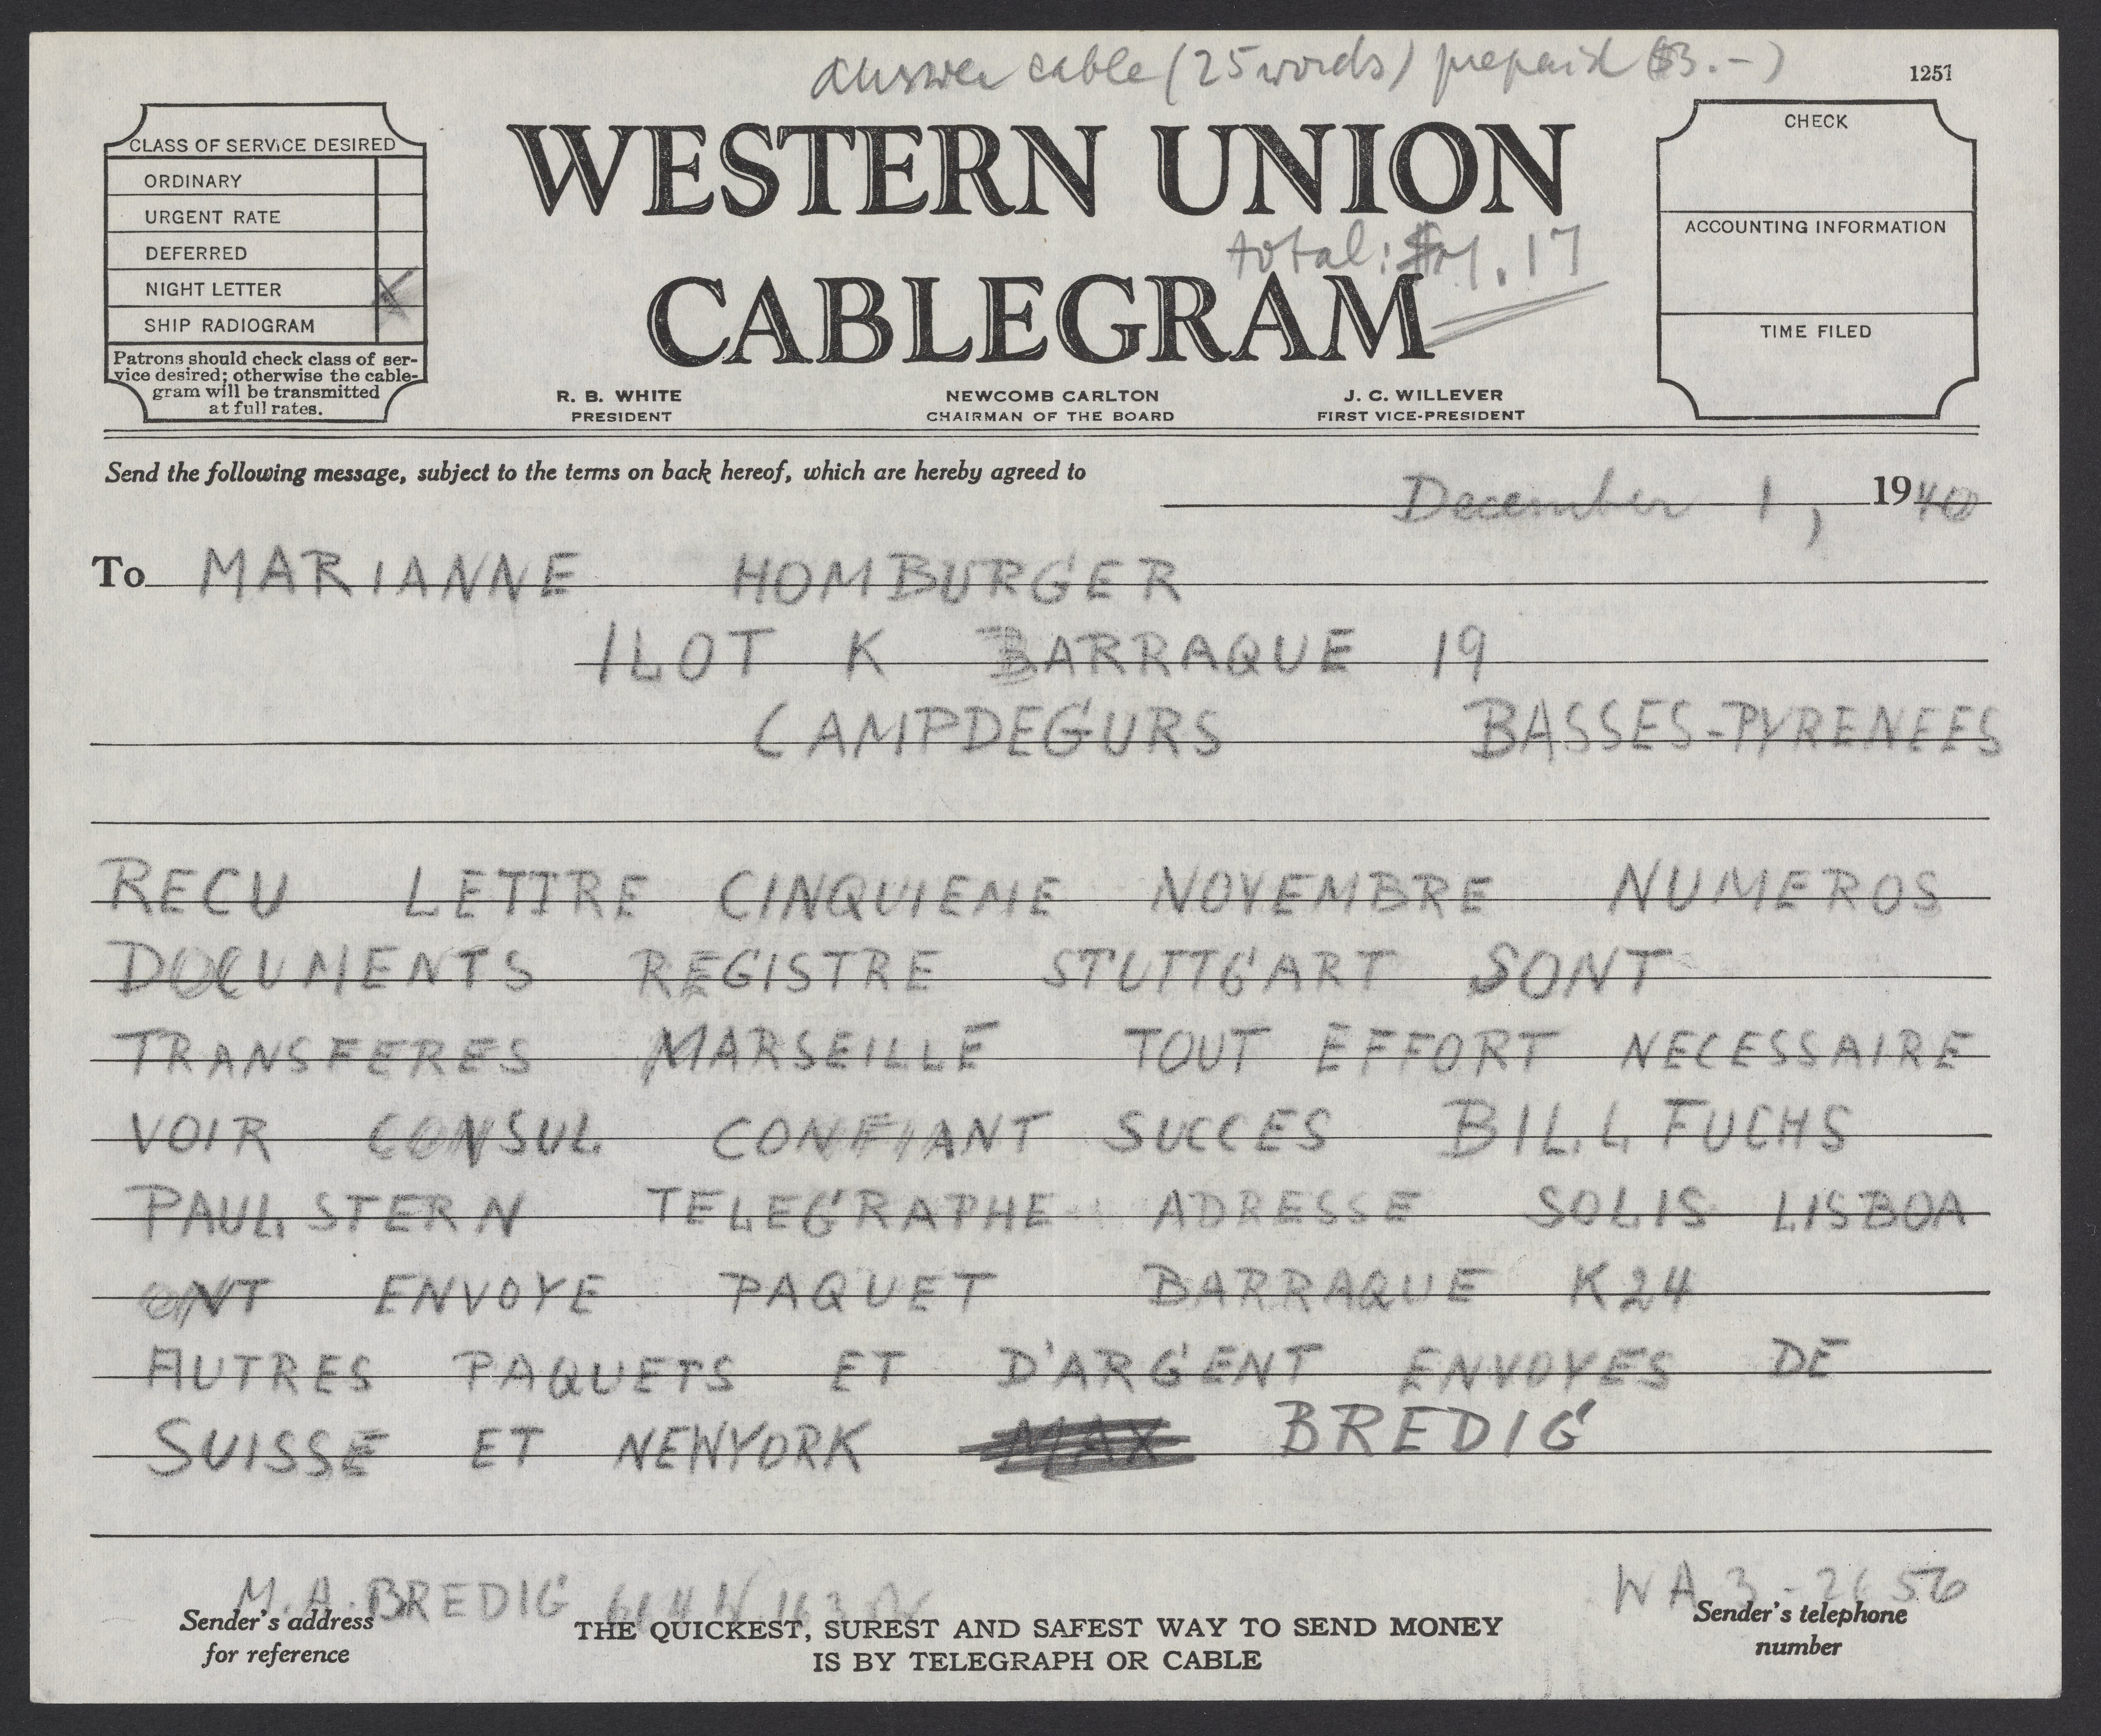 answer cable (25 words) prepaid ($3.-)
1257
CLASS OF SERVICE DESIRED
ORDINARY
URGENT RATE
DEFERRED
NIGHT LETTER X
SHIP RADIOGRAM
Patrons should check class of ser-
vice desired; otherwise the cable-
gram will be transmitted
at full rates.
WESTERN UNION
total: .17
CABLEGRAM
R. B. WHITE
PRESIDENT
NEWCOMB CARLTON
CHAIRMAN OF THE BOARD
J. C. WILLEVER
FIRST VICE-PRESIDENT
CHECK
ACCOUNTING INFORMATION
TIME FILED
Send the following message, subject to the terms on back hereof, which are hereby agreed to
December 1, 1940
To MARIANNE HOMBURGER
ILOT K BARRAQUE 19
CAMPDEGURS BASSES-PYRENEES
RECU LETTRE CINQUIEME NOVEMBRE NUMEROS
DOCUMENTS REGISTRE STUTTGART SONT
TRANSFERES MARSEILLE TOUT EFFORT NECESSAIRE
VOIR CONSUL CONFIANT SUCCES BILL FUCHS
PAUL STERN TELEGRAPHE ADRESSE SOLIS LISBOA
ONT ENVOYE PAQUET BARRAQUE K24
AUTRES PAQUETS ET D'ARGENT ENVOYES DE
SUISSE ET NEWYORK MAX BREDIG
M. A. BREDIG 614 W 163
WA 3-2656
Sender's address
for reference
THE QUICKEST, SUREST AND SAFEST WAY TO SEND MONEY
IS BY TELEGRAPH OR CABLE
Sender's telephone
number